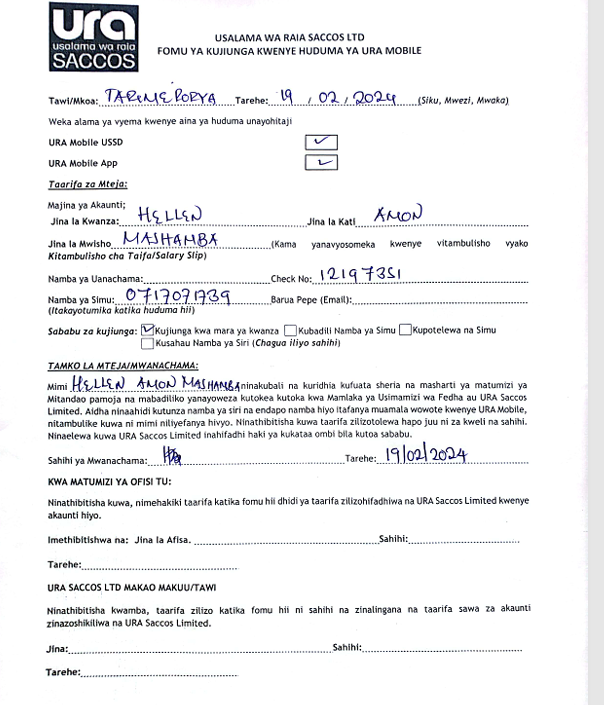 ura
usalama wa raia
SACCOS
USALAMA WA RAIA SACCOS LTD
FOMU YA KUJIUNGA KWENYE HUDUMA YA URA MOBILE
Tawi/Mkoa: TARIME RORYA Tarehe: 19 / 02 / 2024 (Siku, Mwezi, Mwaka)
Weka alama ya vyema kwenye aina ya huduma unayohitaji
URA Mobile USSD ✓
URA Mobile App ✓
Taarifa za Mteja:
Majina ya Akaunti;
Jina la Kwanza: HELLEN Jina la Kati AMON
Jina la Mwisho MASHAMBA (Kama yanavyosomeka kwenye vitambulisho vyako
Kitambulisho cha Taifa/Salary Slip)
Namba ya Uanachama: Check No: 12197351
Namba ya Simu: 0717071739 Barua Pepe (Email):
(Itakayotumika katika huduma hii)
Sababu za kujiunga: ✓ Kujiunga kwa mara ya kwanza Kubadili Namba ya Simu Kupotelewa na Simu
Kusahau Namba ya Siri (Chagua iliyo sahihi)
TAMKO LA MTEJA/MWANACHAMA:
Mimi HELLEN AMON MASHAMBA ninakubali na kuridhia kufuata sheria na masharti ya matumizi ya
Mitandao pamoja na mabadiliko yanayoweza kutokea kutoka kwa Mamlaka ya Usimamizi wa Fedha au URA Saccos
Limited. Aidha ninaahidi kutunza namba ya siri na endapo namba hiyo itafanya muamala wowote kwenye URA Mobile,
nitambulike kuwa ni mimi niliyefanya hivyo. Ninathibitisha kuwa taarifa zilizotolewa hapo juu ni za kweli na sahihi.
Ninaelewa kuwa URA Saccos Limited inahifadhi haki ya kukataa ombi bila kutoa sababu.
Sahihi ya Mwanachama: Tarehe: 19/02/2024
KWA MATUMIZI YA OFISI TU:
Ninathibitisha kuwa, nimehakiki taarifa katika fomu hii dhidi ya taarifa zilizohifadhiwa na URA Saccos Limited kwenye
akaunti hiyo.
Imethibitishwa na: Jina la Afisa. Sahihi:
Tarehe:
URA SACCOS LTD MAKAO MAKUU/TAWI
Ninathibitisha kwamba, taarifa zilizo katika fomu hii ni sahihi na zinalingana na taarifa sawa za akaunti
zinazoshikiliwa na URA Saccos Limited.
Jina: Sahihi:
Tarehe: